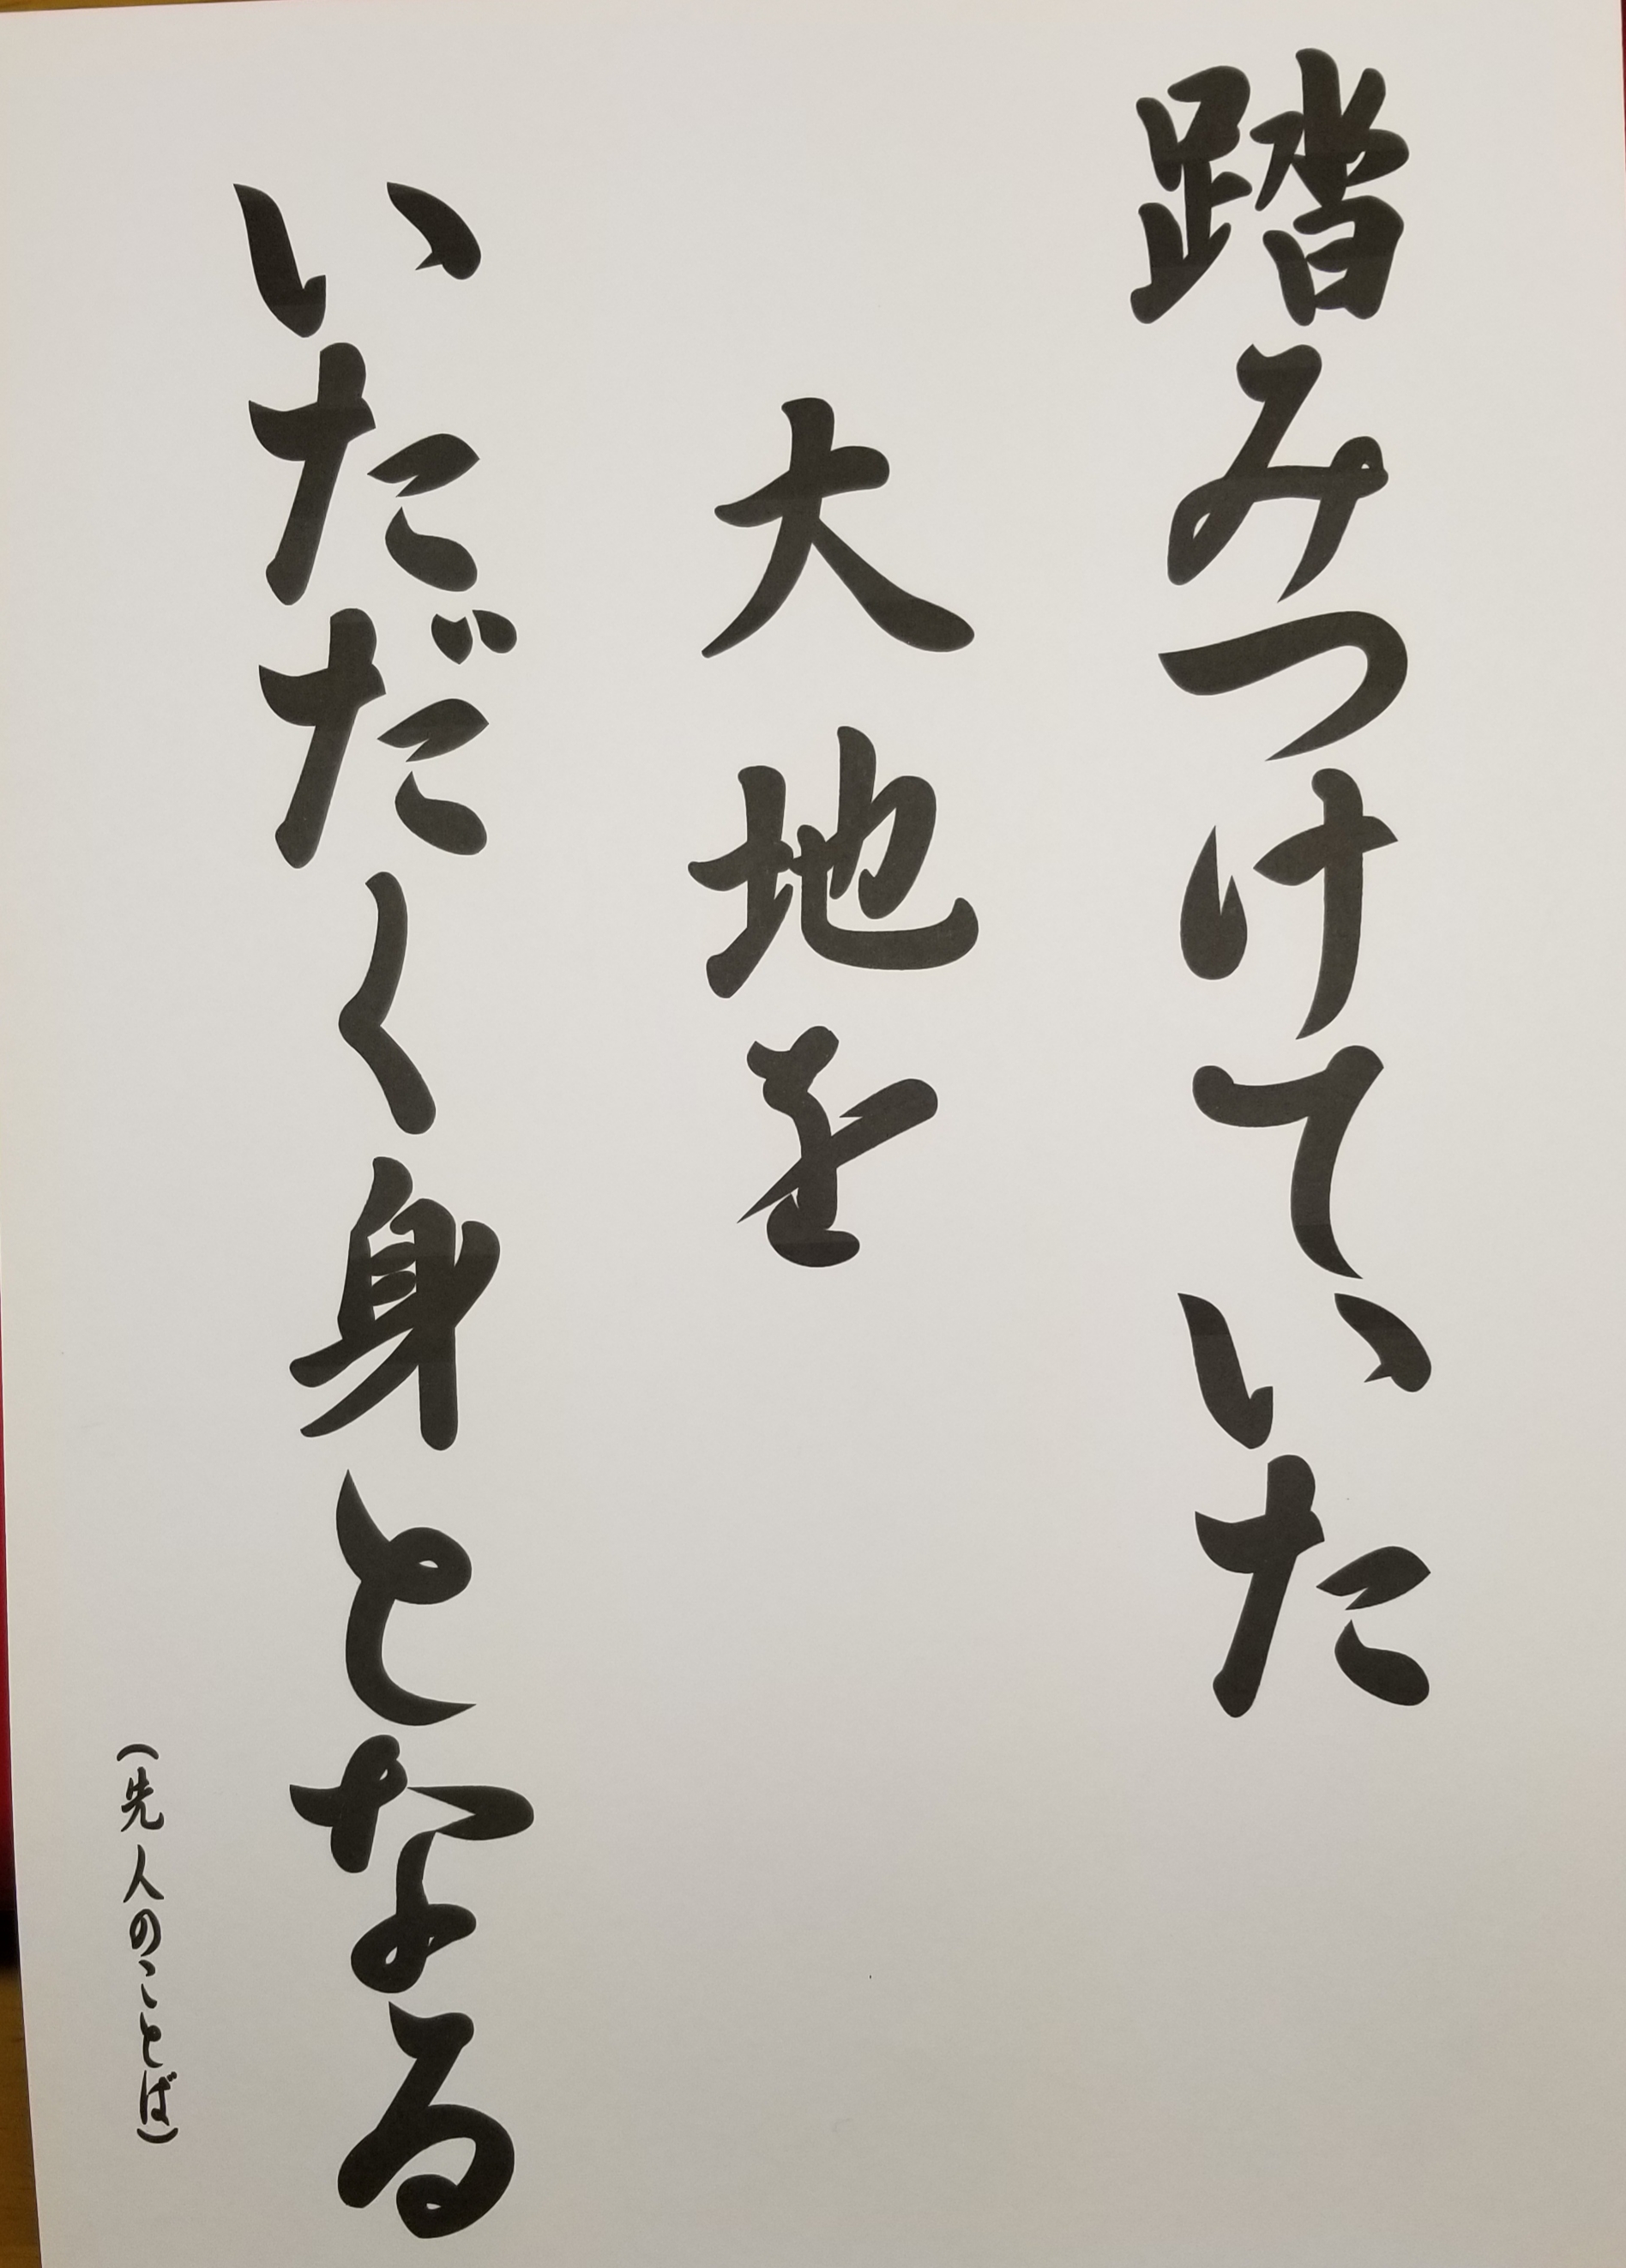 踏みつけていた
大地を
いただく身となる
(先人のことば)